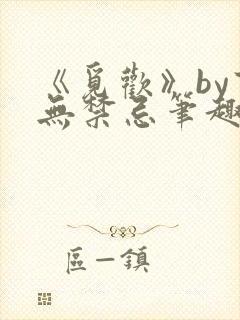 《覓歡》by
無禁忌筆趣
區一鎮